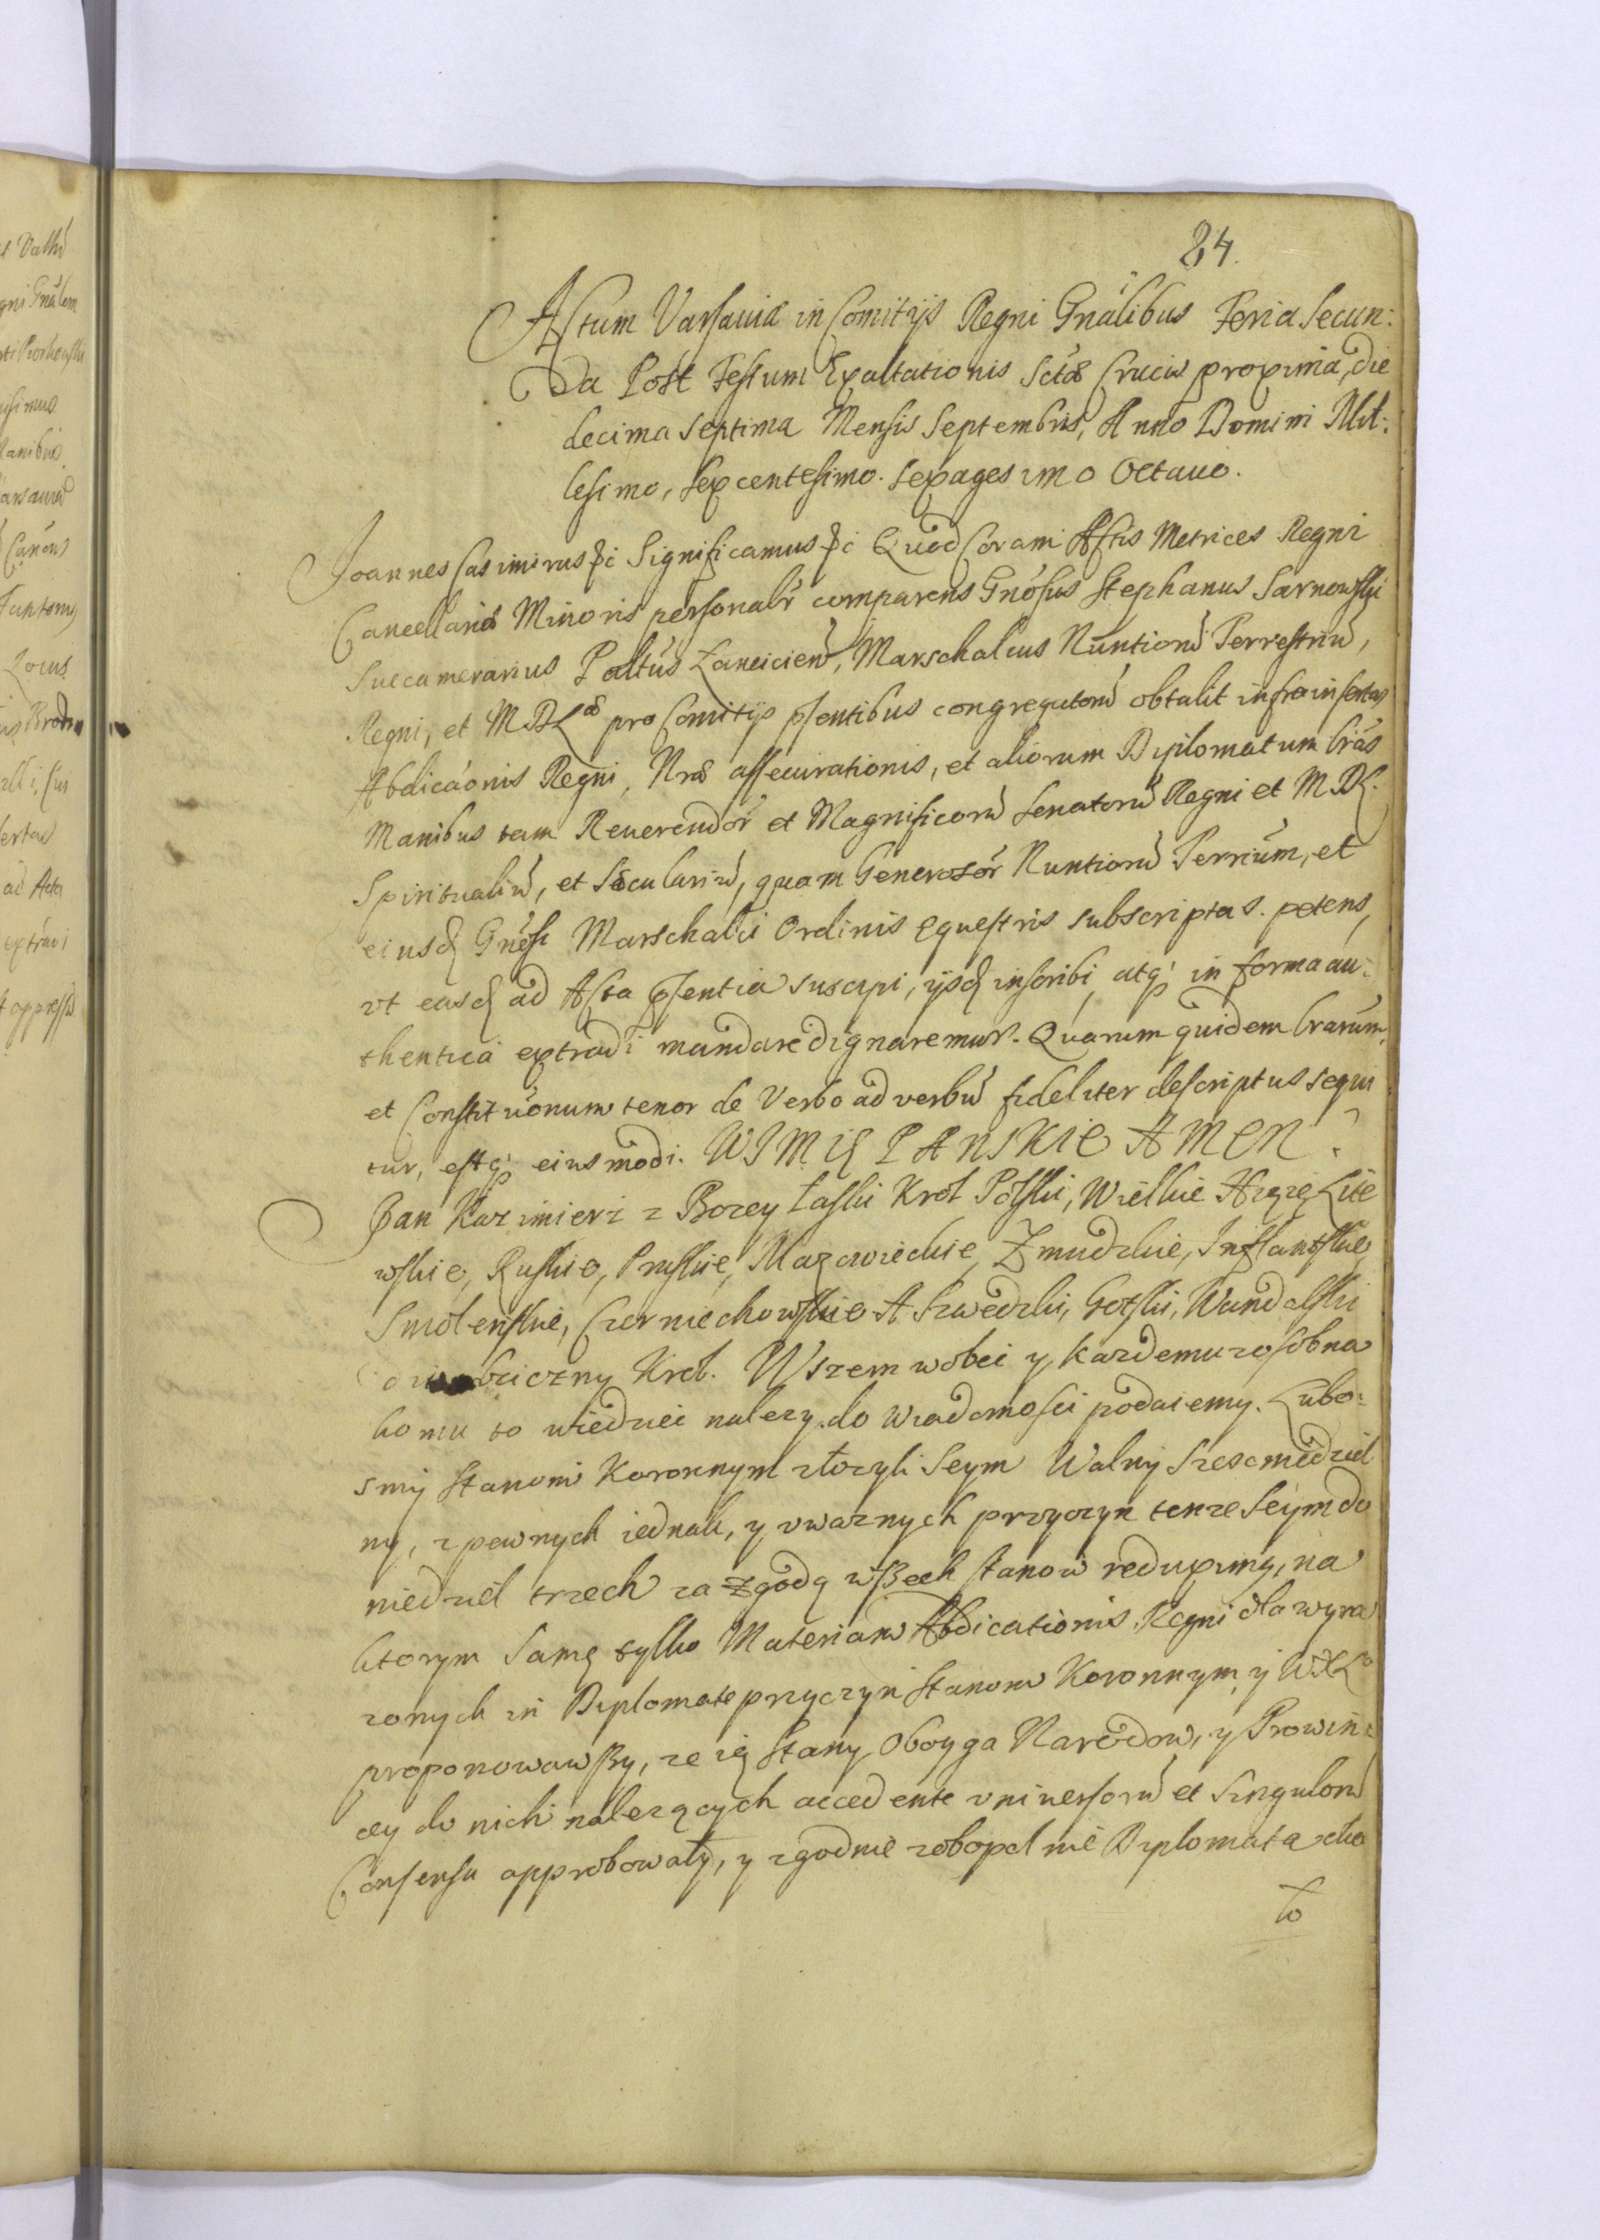 84.
Actum Varsaviæ in Comitijs Regni Gnãlibus Feria Secun:
da Post Festum Exaltationis Sctæ Crucis proxima, die
decima septima Mensis Septembris, Anno Domini Mil:
lesimo, sexcentesimo. sexagesimo Octauo.
Joannes Casimirus &c Significamus &c Quod Coram Actis Metrices Regni
Cancellariæ Minoris personalr comparens Gnosus Stephanus Sarnowski
Succamerarius Paltus Lancicien, Marschalcus Nuntioru Terrestriu,
Regni, et M D L pro Comitijs pñtibus congregatoru obtulit infra insertas
Abdicaonis Regni, Nræ assecurationis, et aliorum Diplomatum lras
Manibus tam Reuerendor et Magnificoru Senatoru Regni et M D L.
Spiritualiu, et Sæculariu, quam Generosor Nuntioru Terrium, et
eiusd Gnosi Marschalci Ordinis Equestris subscriptas. petens,
vt easd ad Acta pñtia suscipi, ijsd inscribi, atq in forma au:
thentica extradi mandare dignaremur. Quarum quidem lrarum,
et Constituonum tenor de Verbo ad verbu fideliter descriptus sequi
tur, estq eiusmodi. W IMIĘ PANSKIE AMEN.
Jan Kazimierz z Bozey łaski Krol Polski, Wielkie Xiązę Lite
wskie, Ruskie, Pruskie, Mazowieckie, Zmudzkie, Inflantskie,
Smolenskie, Czerniechowskie A Szwedzki, Gotski, Wandalski
dziedziczny Krol. Wszem wobei y kazdemu zosobna
komu to wiedziei nalezy do wiadomosci podaiemy. Lubo:
smy Stanom Koronnym złozyli Seym Walny szescniedziel
ny, z pewnych iednak, y vwaznych przyczyn tenze Seym do
niedziel trzech za zgodą wszech stanow reduximy, na
ktorym samę tylko Materiam Abdicationis Regni dla wyra
zonych in Diplomate przyczyn Stanom Koronnym y W X L
proponowawszy, ze ię Stany Oboyga Narodow, y Prowin:
cey do nich nalezących accedente vniuersoru et singuloru
Consensu approbowały, y zgodnie zobopolnie Diplomata
to